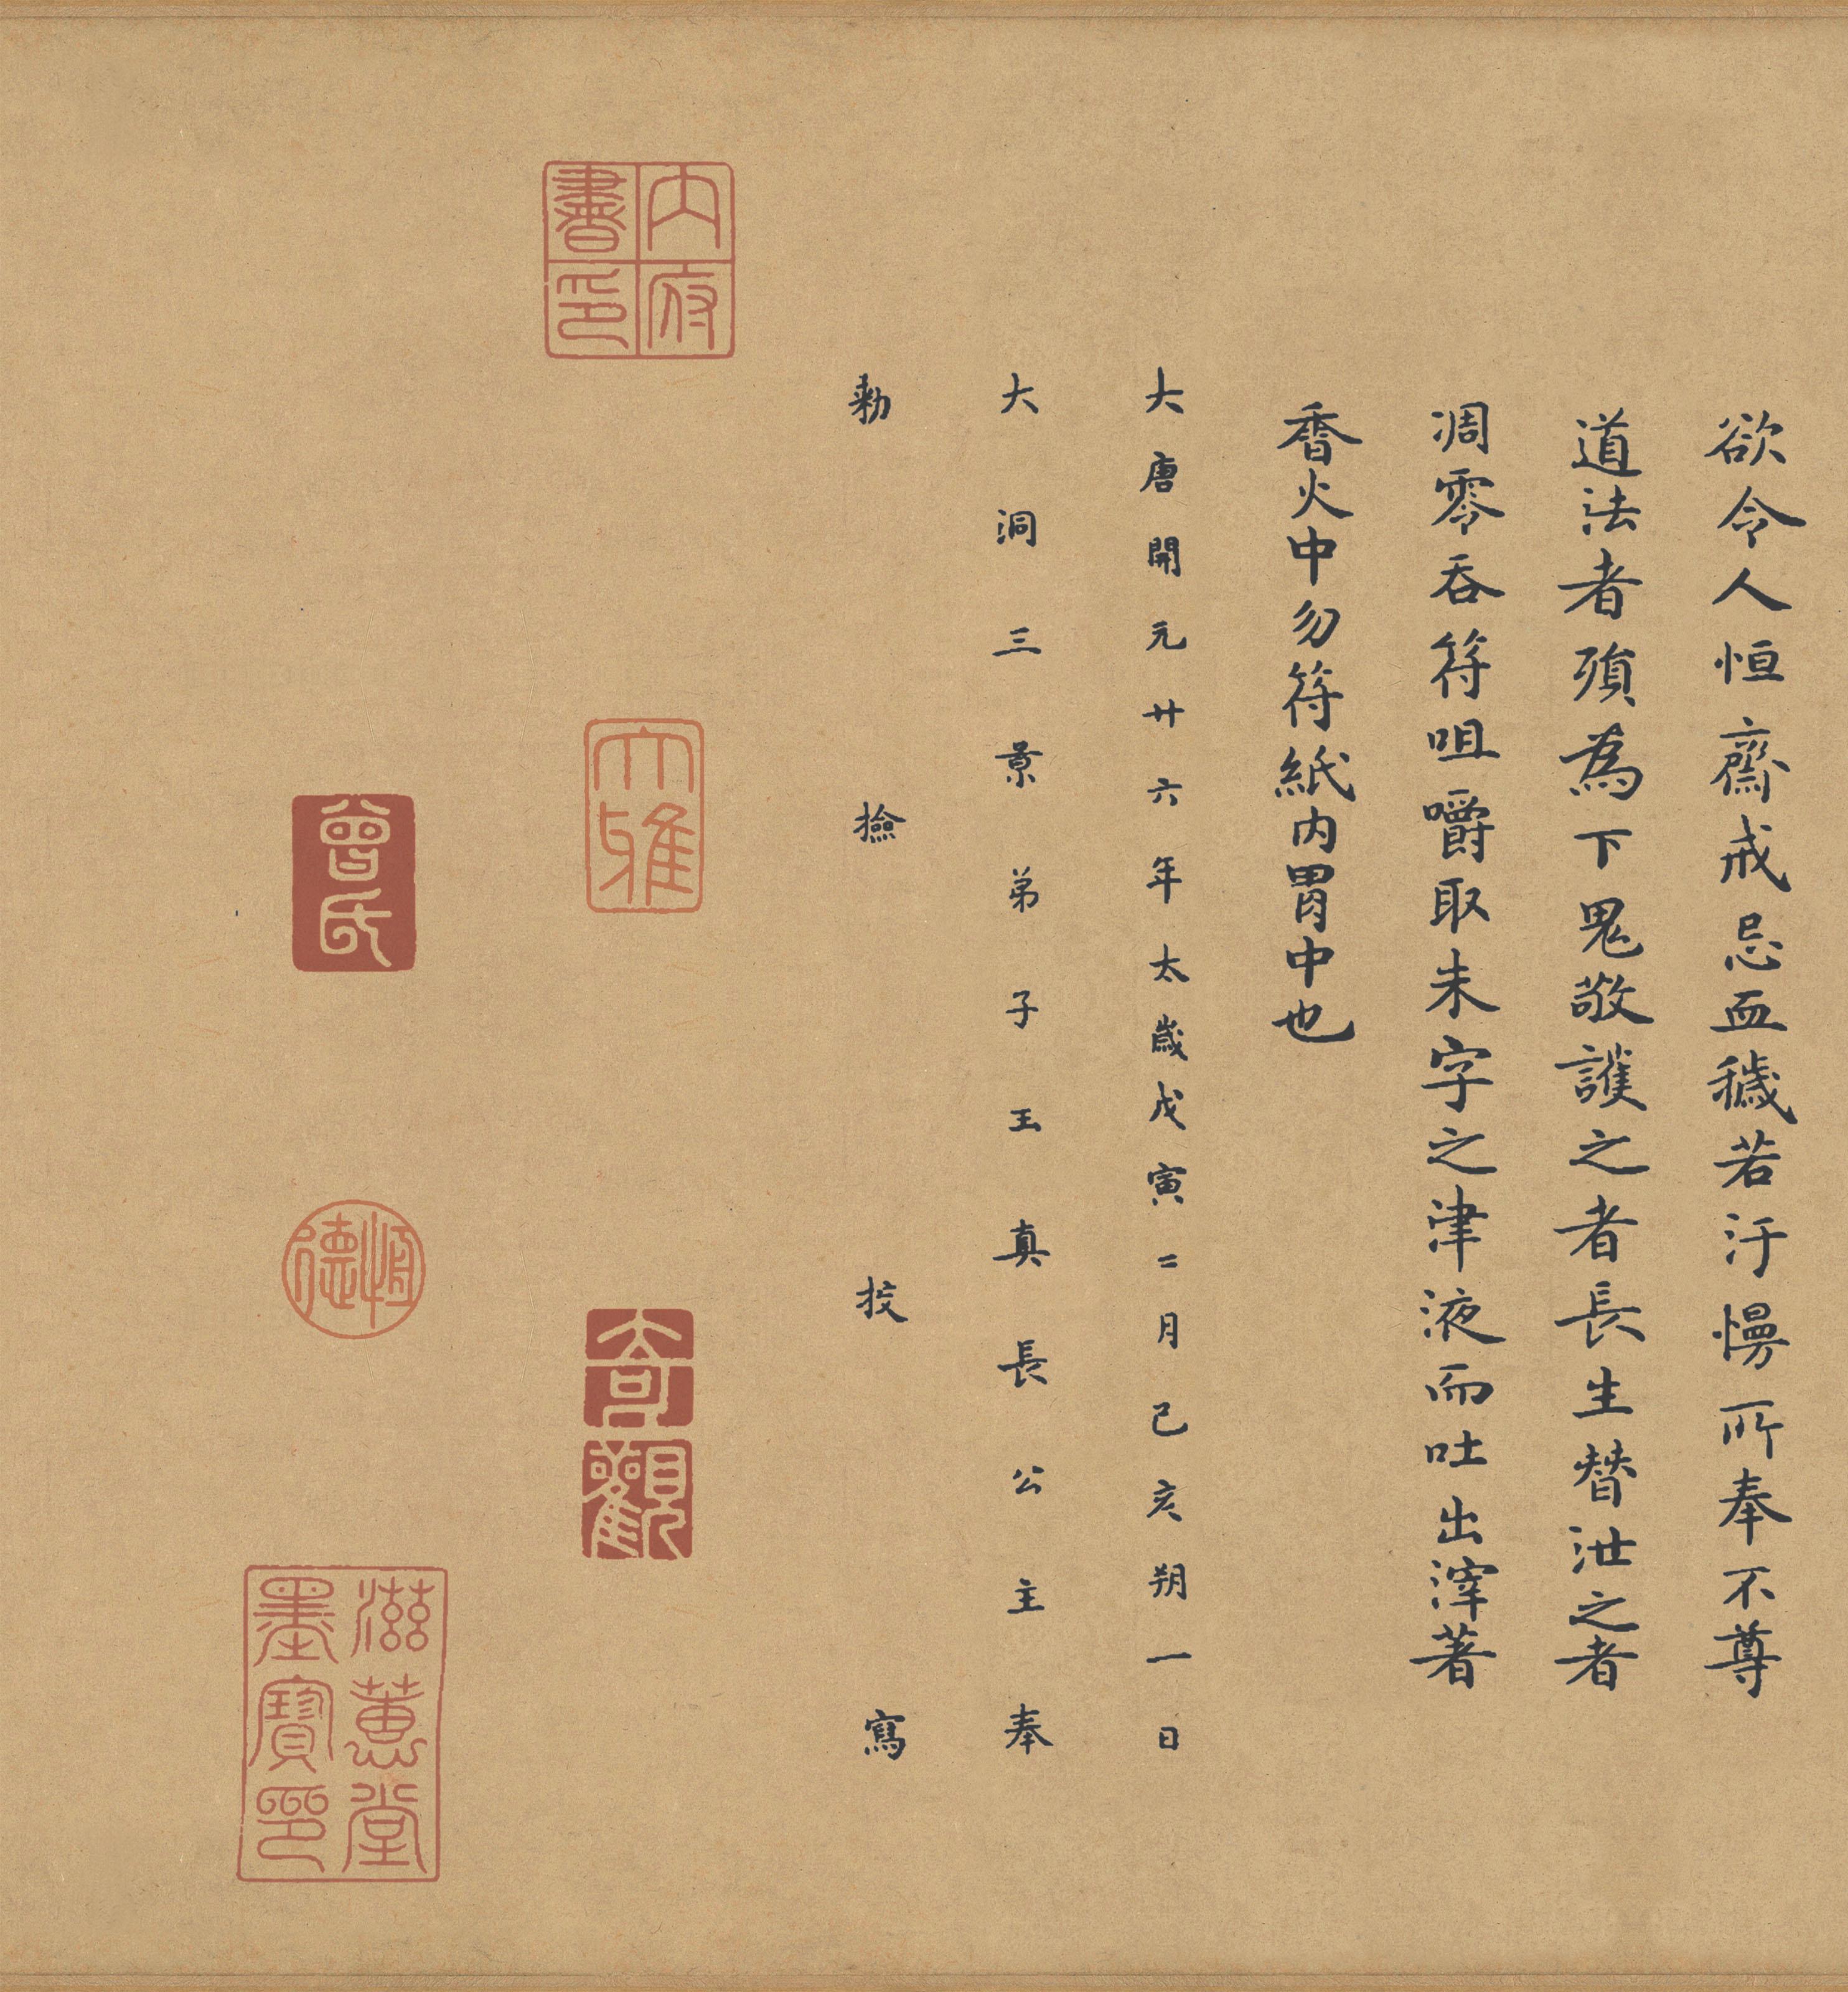 欲令人恒齋戒忌血穢若汙慢所奉不尊
道法者須為下鬼敬護之者長生替泄之者
凋零吞符咀嚼取朱字之津液而吐出滓著
香火中勿符紙內胃中也
大唐開元廿六年太歲戊寅二月己亥朔一日
大洞三景弟子玉真長公主奉
勅檢挍寫
內府書印
大雅
奇觀
曾氏
恒德
滋蕙堂墨寶印